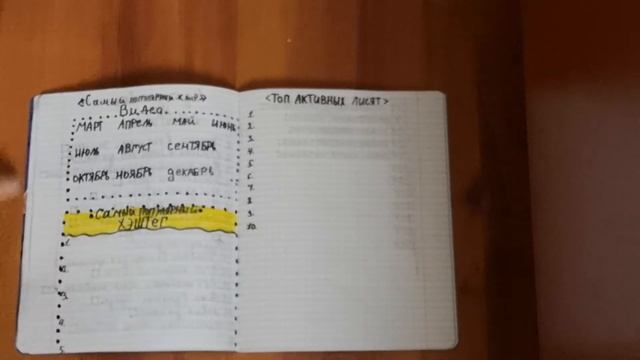 «Самый популярный
Видео
МАРТ АПРЕЛЬ МАЙ ИЮНЬ
ИЮЛЬ АВГУСТ СЕНТЯБРЬ
ОКТЯБРЬ НОЯБРЬ ДЕКАБРЬ
Самый популярный
ХЭШТЕГ
1.
2.
3.
4.
5.
<ТОП АКТИВНЫХ ЛИСЯТ>
1.
2.
3.
4.
5.
6.
7.
8.
9.
10.